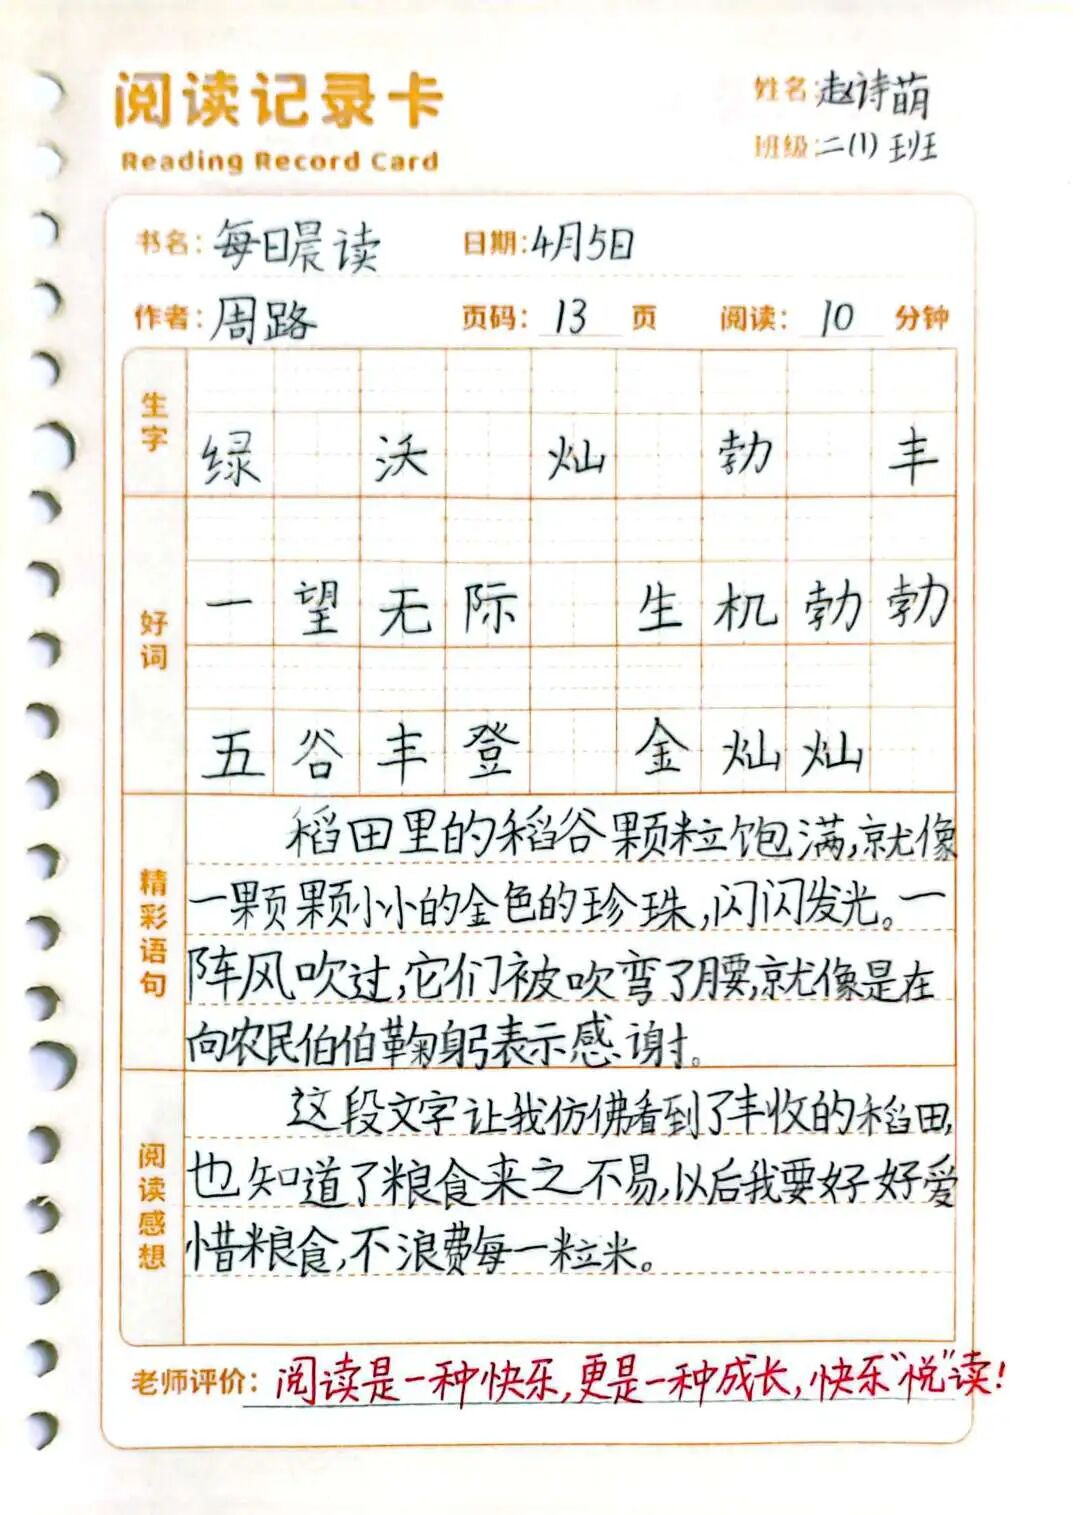 阅读记录卡
Reading Record Card
姓名:赵诗萌
班级:二(1)班
书名:每日晨读 日期:4月5日
作者:周路 页码:13页 阅读:10分钟
生字
绿 沃 灿 勃 丰
好词
一望无际 生机勃勃
五谷丰登 金灿灿
精彩语句
稻田里的稻谷颗粒饱满,就像
一颗颗小小的金色的珍珠,闪闪发光。一
阵风吹过,它们被吹弯了腰,就像是在
向农民伯伯鞠躬表示感谢。
阅读感想
这段文字让我仿佛看到了丰收的稻田,
也知道了粮食来之不易,以后我要好好爱
惜粮食,不浪费每一粒米。
老师评价:阅读是一种快乐,更是一种成长,快乐“悦”读!